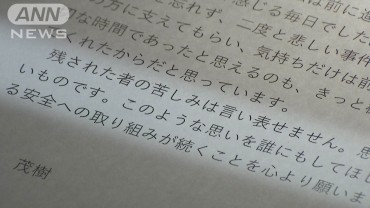 ANN
NEWS
感じる毎日でした
は前に進
忘れず、二度と悲しい事件
の方に支えてもらい、気持ちだけは前
切な時間であったと思えるのも、きっと
くれたからだと思っています。
残された者の苦しみは言い表せません。思
いものです。このような思いを誰にもしてほし
る安全への取り組みが続くことを心より願いま
茂樹